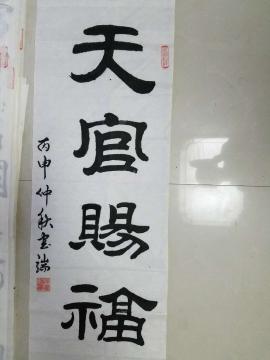 天官賜福
丙申仲秋書